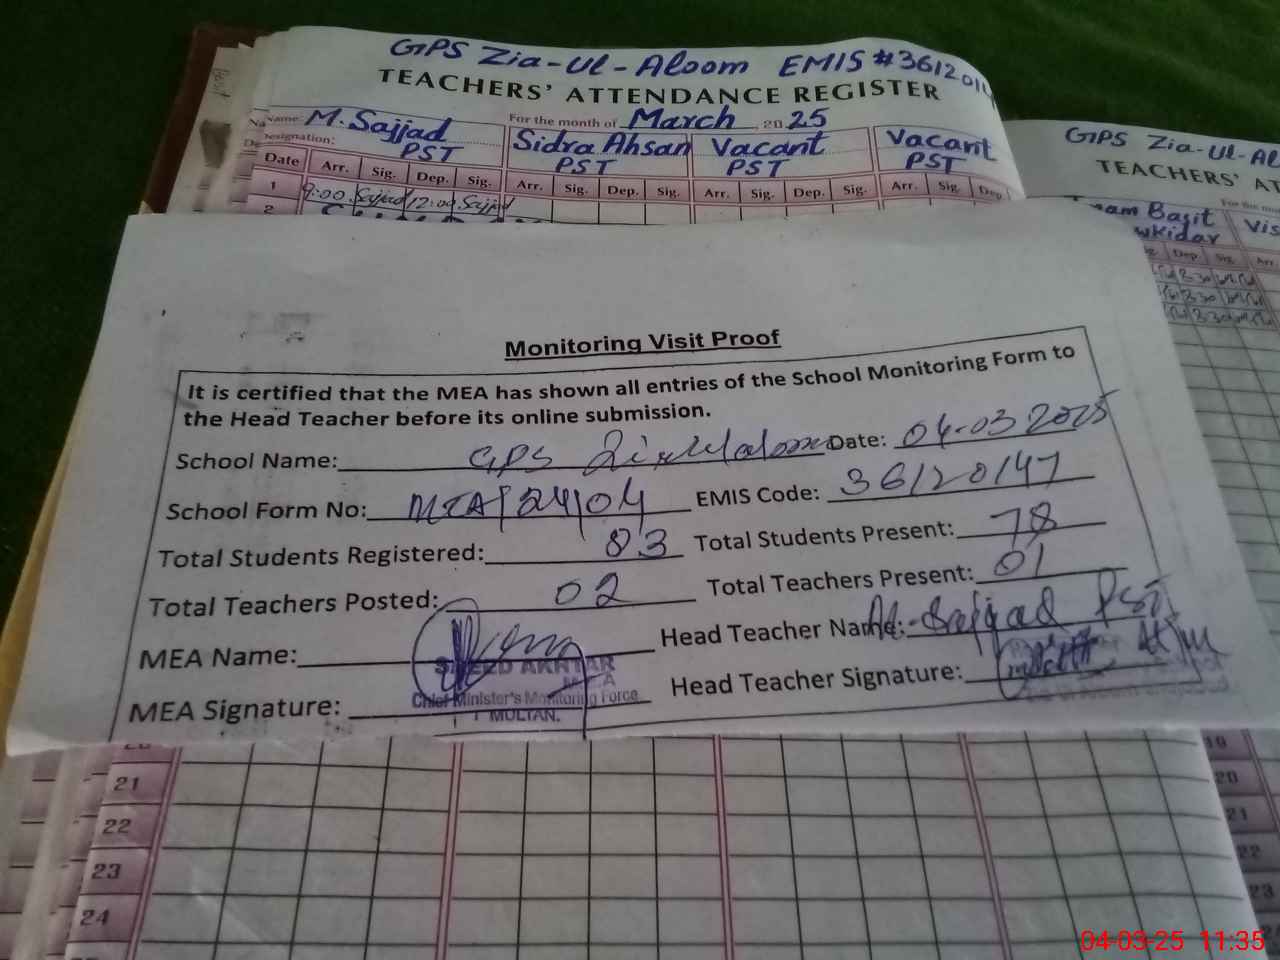 GPS Zia-Ul-Aloom EMIS #3612014
TEACHERS' ATTENDANCE REGISTER
Name: M. Sajjad For the month of March, 2025
Designation: PST Sidra Ahsan PST Vacant PST Vacant PST
Date Arr. Sig. Dep. Sig. Arr. Sig. Dep. Sig. Arr. Sig. Dep. Sig. Arr. Sig. Dep.
1 9:00 Sajjad 12:00 Sajjad
2
GPS Zia-Ul-Al
TEACHERS' AT
For the mo
Basit Vis
wkidar
Dep. Sig. Arr.
Monitoring Visit Proof
It is certified that the MEA has shown all entries of the School Monitoring Form to
the Head Teacher before its online submission.
School Name: GPS Date: 04-03 2025
School Form No: MEA/24/04 EMIS Code: 36120147
Total Students Registered: 83 Total Students Present: 78
Total Teachers Posted: 02 Total Teachers Present: 01
MEA Name: Head Teacher Name: M. Sajjad PST
MEA Signature: Head Teacher Signature:
SAEED AKHTAR
MEA
Chief Minister's Monitoring Force
MULTAN.
21
22
23
24
19
20
21
22
23
04-03-25 11:35